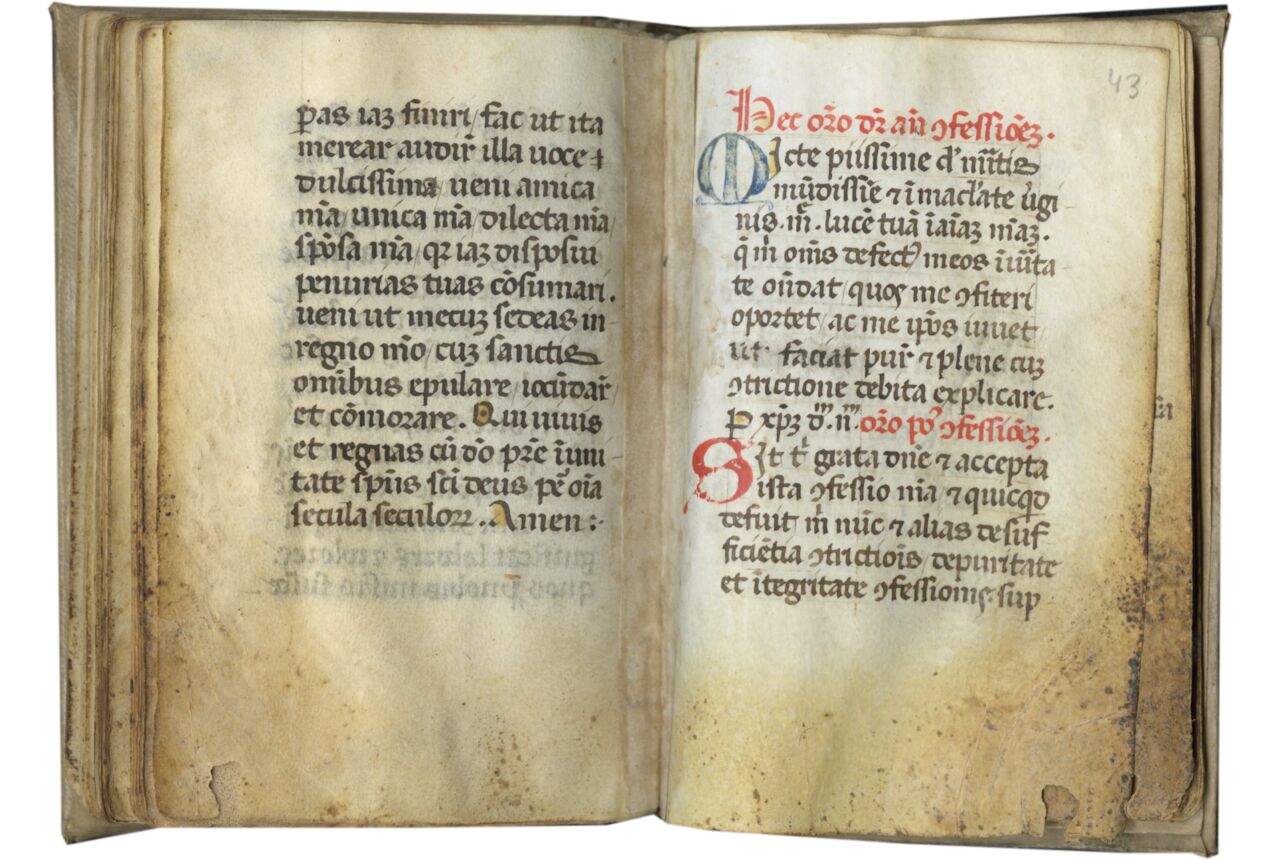 ꝑas iaꝫ finiri / fac ut ita
merear audir̄ illa uoce
dulcissimā ueni amica
m̄a / unica m̄a / dilecta m̄a /
sp̄osa m̄a / qꝛ iaꝫ disposui
penurias tuas cōsumari.
ueni ut mecuꝫ sedeas in
regno m̄o / cuꝫ sanctis
omībus epulare / iocūdar̄
et cōmorare. Qui uiuis
et regnas cū dō pr̄e ī uni
tate sp̄us sc̄i deus pe᷑ oīa
secula seculoꝝ. Amen :·
43
Hec or̄o dr̄ an̄ ꝯfessiōeꝫ.
Micte piissime d' m̄itis
mūdissīe ⁊ īmacl̄ate ūgi
nis. mr̄. lucē tuā ī aīaꝫ m̄aꝫ.
q̄ m̄ om̄s defectꝰ meos ī uīta
te on̄dat / quos me ꝯfiteri
oportet / ac me ip̄os
ut faciat pur̄ ⁊ plene cuꝫ
ꝯtrictione debita explicare.
P xp̄ꝫ d. n. or̄o po᷑ ꝯfessiōeꝫ.
Sit t' grata dn̄e ⁊ accepta
ista ꝯfessio m̄a ⁊ quicqd
defuit m̄ nūc ⁊ alias de suf
ficiētia ꝯtrictiōis / de puritate
et ītegritate ꝯfessionis. sup